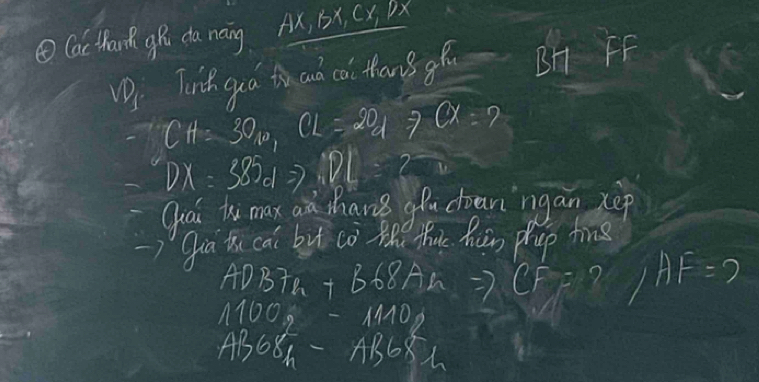 ⊕ Các thanh ghi đa năng AX, BX, CX, DX
VD1: Tính giá trị của các thanh ghi BH FF
- CH = 30₁₀, CL = 20d => CX = ?
- DX = 385d => DL ?
- Giá trị max của thanh ghi đoạn ngăn xếp
-> Giá trị các bit cờ khi thực hiện phép tính
ADB7h + B68Ah => CF = ?, AF = ?
1100₂ - 1110₂
AB68h - AB68h